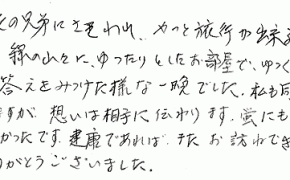 の兄弟にさそわれ、やっと旅行が出来
緑の山々に、ゆったりとしたお部屋で、ゆっく
答えをみつけた様な一晩でした。私も
すが、想いは相手に伝わります。蛍にも
かったです。健康であれば、またお訪ねでき
りがとうございました。